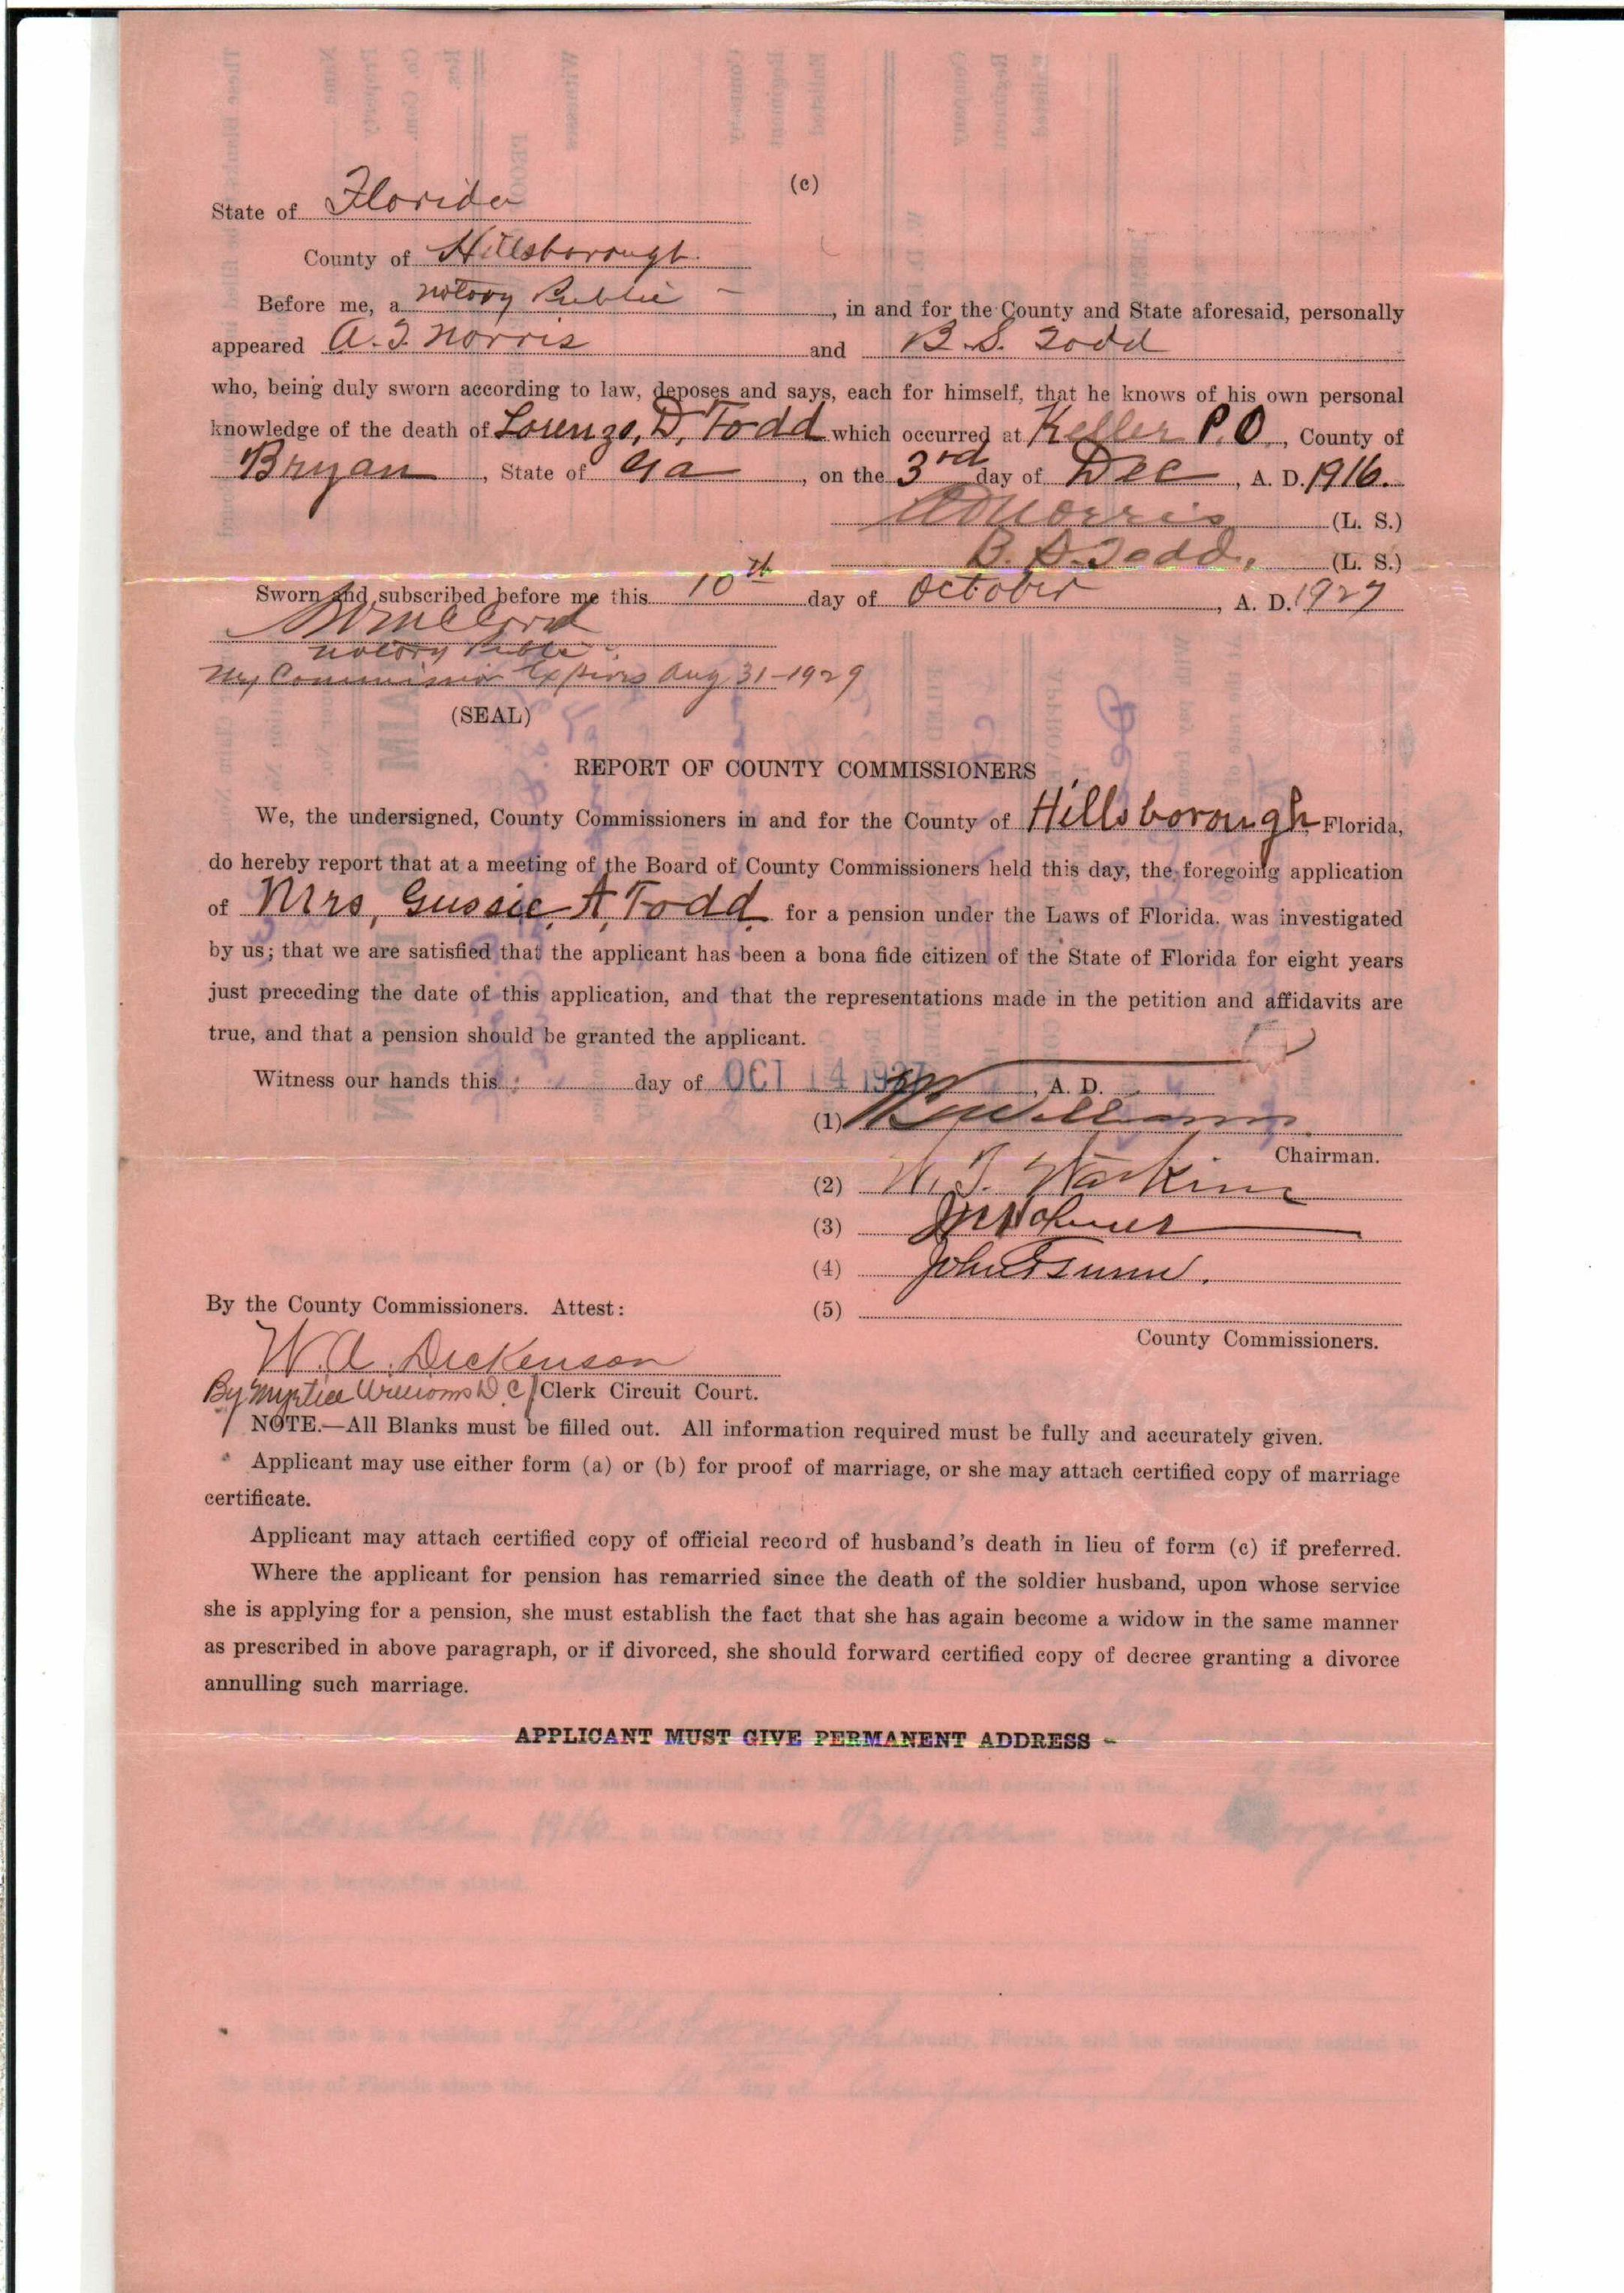 (c)
State of Florida
County of Hillsborough.
Before me, a notory Public — , in and for the County and State aforesaid, personally
appeared A. T. Norris and B. S. Todd
who, being duly sworn according to law, deposes and says, each for himself, that he knows of his own personal
knowledge of the death of Lorenzo, D, Todd which occurred at Keller P.O., County of
Bryan, State of Ga, on the 3rd day of Dec, A. D. 1916.
Norris (L. S.)
B. S. Todd. (L. S.)
Sworn and subscribed before me this 10th day of October, A. D. 1927
notory Public
My Commission Expires Aug 31-1929
(SEAL)
REPORT OF COUNTY COMMISSIONERS
We, the undersigned, County Commissioners in and for the County of Hillsborough Florida,
do hereby report that at a meeting of the Board of County Commissioners held this day, the foregoing application
of Mrs, Gussie A Todd for a pension under the Laws of Florida, was investigated
by us; that we are satisfied that the applicant has been a bona fide citizen of the State of Florida for eight years
just preceding the date of this application, and that the representations made in the petition and affidavits are
true, and that a pension should be granted the applicant.
Witness our hands this day of OCT 14 1927, A. D.
(1) Williams
Chairman.
(2) W. T. Watkins
(3) Holmes
(4) John
By the County Commissioners. Attest: (5)
County Commissioners.
W. A. Dickenson
By Myrtice Williams D C Clerk Circuit Court.
NOTE.—All Blanks must be filled out. All information required must be fully and accurately given.
Applicant may use either form (a) or (b) for proof of marriage, or she may attach certified copy of marriage
certificate.
Applicant may attach certified copy of official record of husband's death in lieu of form (c) if preferred.
Where the applicant for pension has remarried since the death of the soldier husband, upon whose service
she is applying for a pension, she must establish the fact that she has again become a widow in the same manner
as prescribed in above paragraph, or if divorced, she should forward certified copy of decree granting a divorce
annulling such marriage.
APPLICANT MUST GIVE PERMANENT ADDRESS